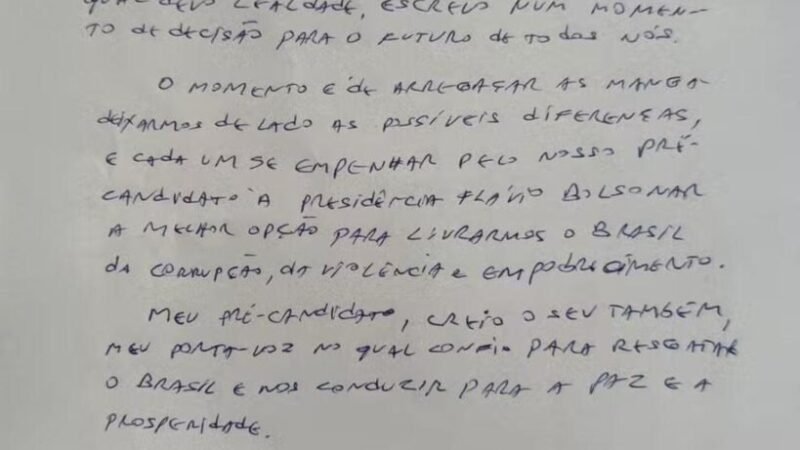 QUAL DEVO LEALDADE, ESCREVO NUM MOMEN-
TO DE DECISÃO PARA O FUTURO DE TODOS NÓS.
O MOMENTO É DE ARREGAÇAR AS MANGA
DEIXARMOS DE LADO AS POSSÍVEIS DIFERENÇAS,
E CADA UM SE EMPENHAR PELO NOSSO PRÉ-
CANDIDATO À PRESIDÊNCIA FLÁVIO BOLSONAR
A MELHOR OPÇÃO PARA LIVRARMOS O BRASIL
DA CORRUPÇÃO, DA VIOLÊNCIA E EMPOBRECIMENTO.
MEU PRÉ-CANDIDATO, CREIO O SEU TAMBÉM,
MEU PORTA-VOZ NO QUAL CONFIO PARA RESGATAR
O BRASIL E NOS CONDUZIR PARA A PAZ E A
PROSPERIDADE.